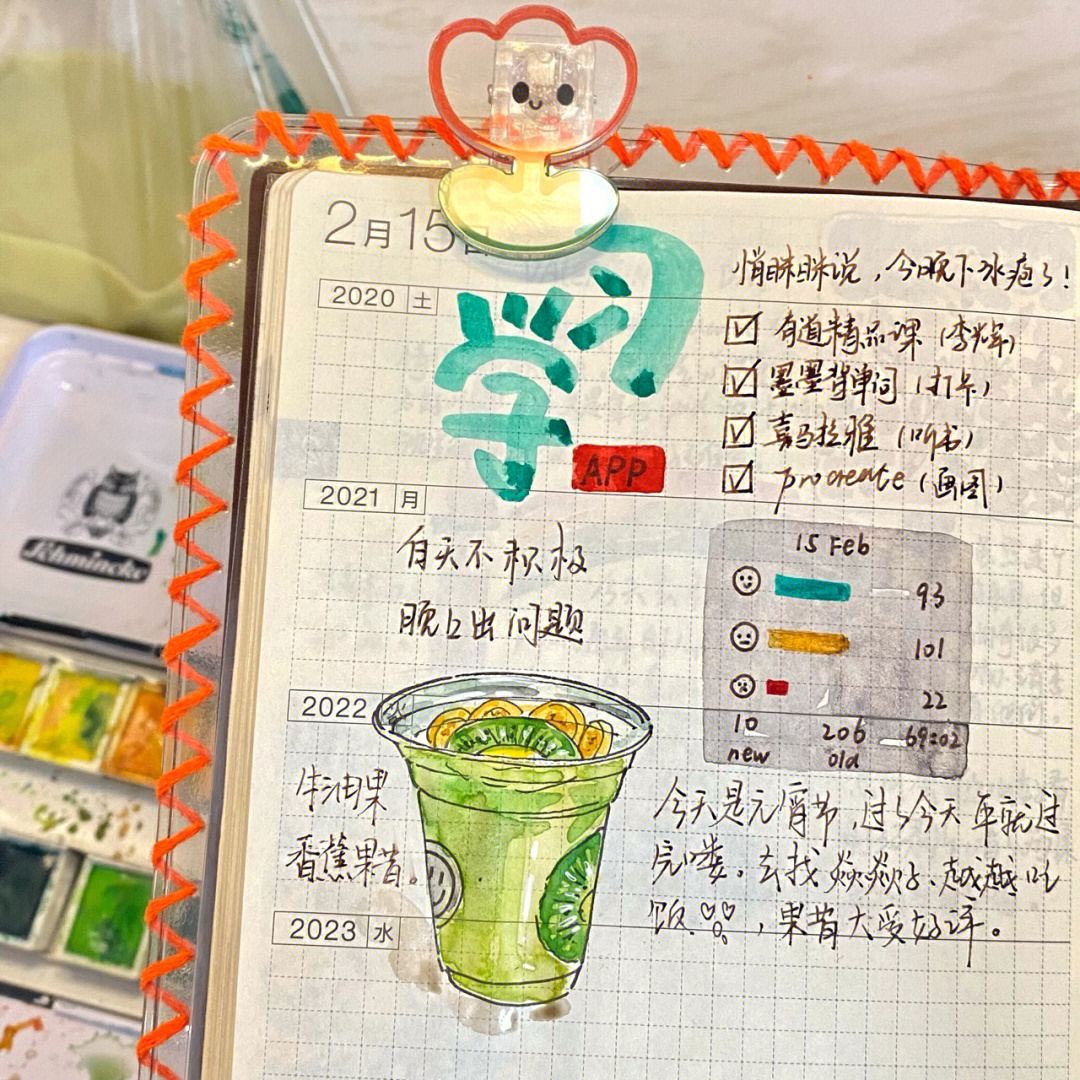 2月15日
2020 土
学习
APP
悄眯眯说，今晚下冰雹了！
☑ 有道精品课（李辉）
☑ 墨墨背单词（打卡）
☑ 喜马拉雅（听书）
☑ procreate（画图）
2021 月
白天不积极
晚上出问题
15 Feb
93
101
22
10 206 69:02
new old
2022
牛油果
香蕉果昔。
今天是元宵节，过了今天年就过
完喽。去找焱焱子、越越吃
饭，果昔大受好评。
2023 水
Schmincke